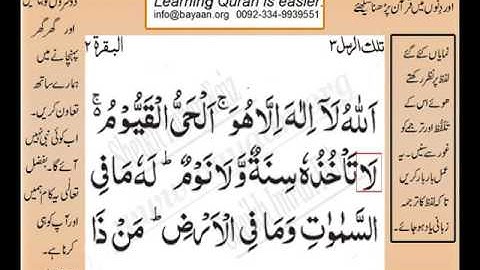 Learning Quran is easier.
info@bayaan.org 0092-334-9939551
اور دنوں میں قرآن پڑھنا سیکھئے
البقرة ٢
تلك الرسل ٣
اَللّٰهُ لَاۤ اِلٰهَ اِلَّا هُوَ ۚ اَلْحَیُّ الْقَیُّوْمُ ۚ
لَا تَاْخُذُهٗ سِنَةٌ وَّ لَا نَوْمٌ ؕ لَهٗ مَا فِی
السَّمٰوٰتِ وَ مَا فِی الْاَرْضِ ؕ مَنْ ذَا
نمایاں کئے گئے
لفظ پر نظر رکھتے
ہوئے اس کے
تلفظ اور ترجمے کو
غور سے سنیں۔ یہ
عمل بار بار کریں
تاکہ لفظ کا ترجمہ
زبانی یاد ہو جائے۔
اور گھر گھر
پہنچانے میں
ہمارے ساتھ
تعاون کریں۔
اب کوئی نبی نہیں
آئے گا۔ بفضل
تعالٰی یہ کام ہمیں
اور آپ کو ہی
کرنا ہے۔